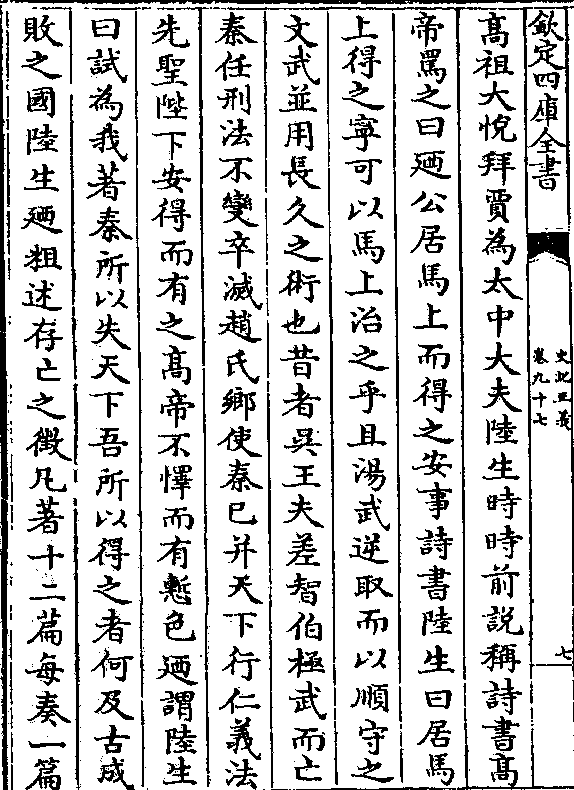 欽定四庫全書
史記正義
卷九十七
七
髙祖大悅拜賈為太中大夫陸生時時前説稱詩書髙
帝罵之曰廼公居馬上而得之安事詩書陸生曰居馬
上得之寧可以馬上治之乎且湯武逆取而以順守之
文武並用長久之術也昔者吳王夫差智伯極武而亡
秦任刑法不變卒滅趙氏鄉使秦已并天下行仁義法
先聖陛下安得而有之髙帝不懌而有慙色廼謂陸生
曰試為我著秦所以失天下吾所以得之者何及古成
敗之國陸生廼粗述存亡之徵凡著十二篇每奏一篇